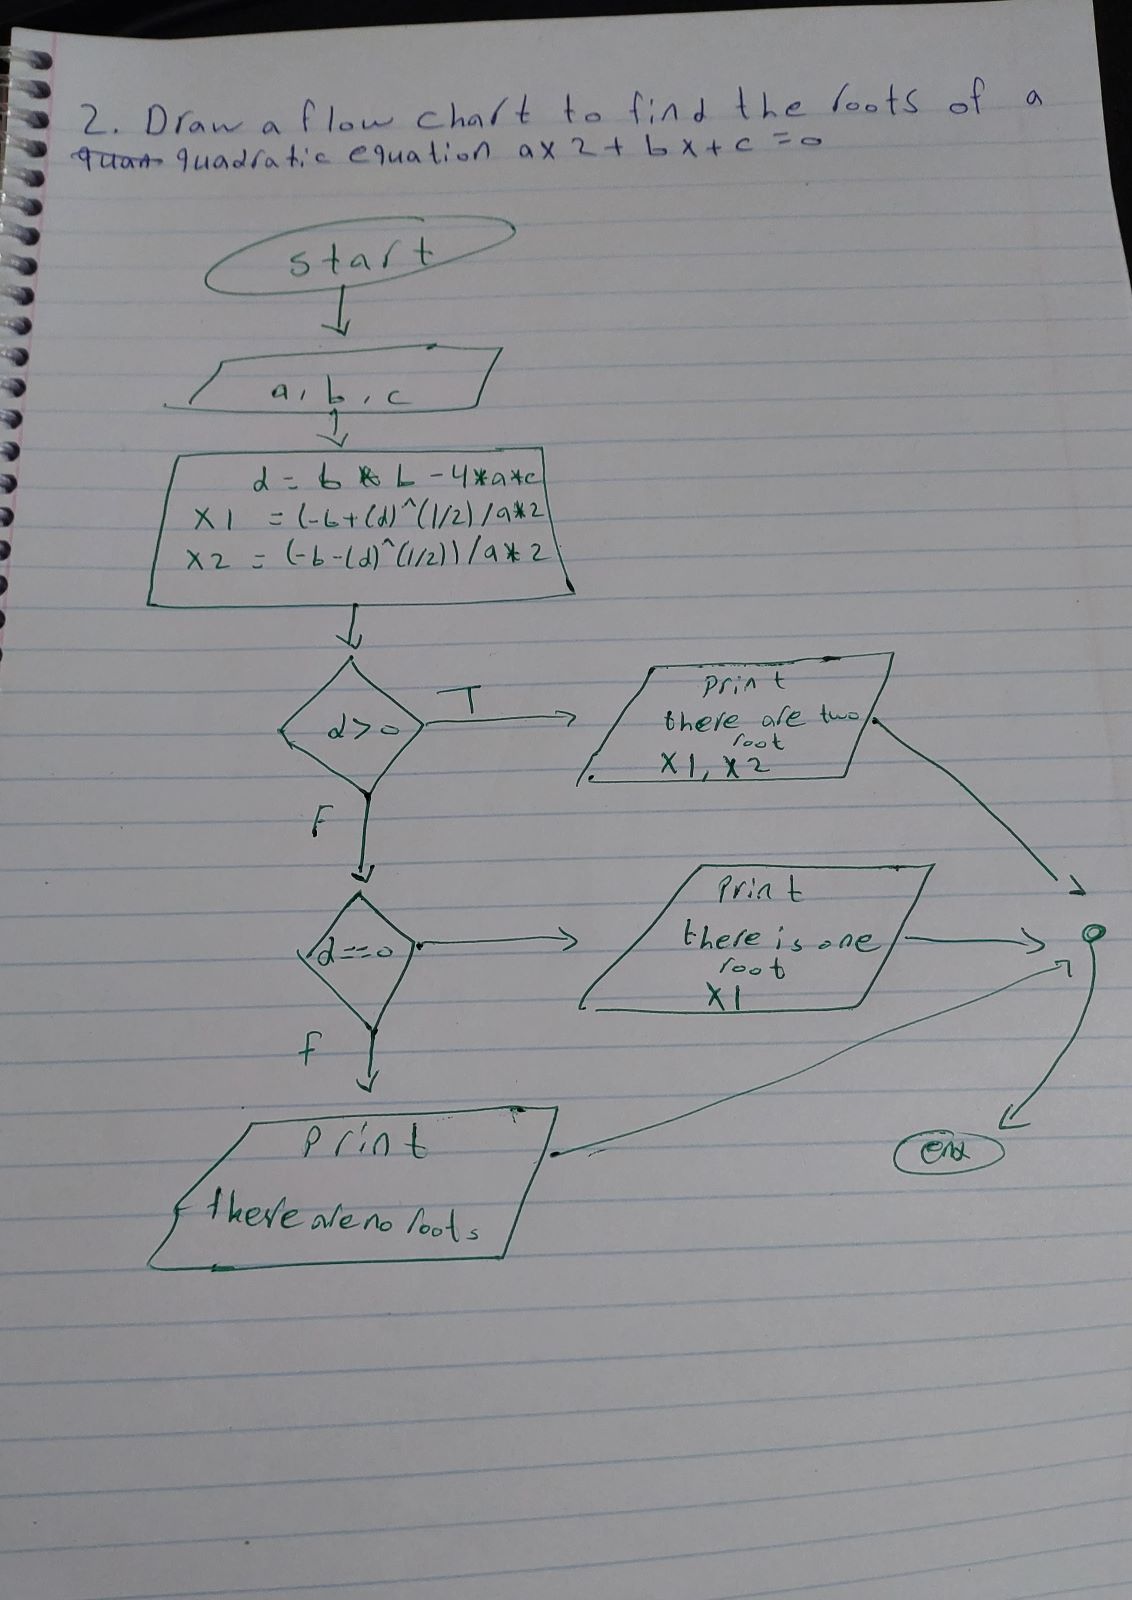 2. Draw a flow chart to find the roots of a
quadratic equation ax2 + bx + c = 0
start
a, b, c
d = b * b - 4*a*c
X1 = (-b+(d)^(1/2)/a*2
X2 = (-b-(d)^(1/2))/a*2
d>0
T
print
there are two
root
X1, X2
F
d==0
print
there is one
root
X1
f
print
there are no roots
end